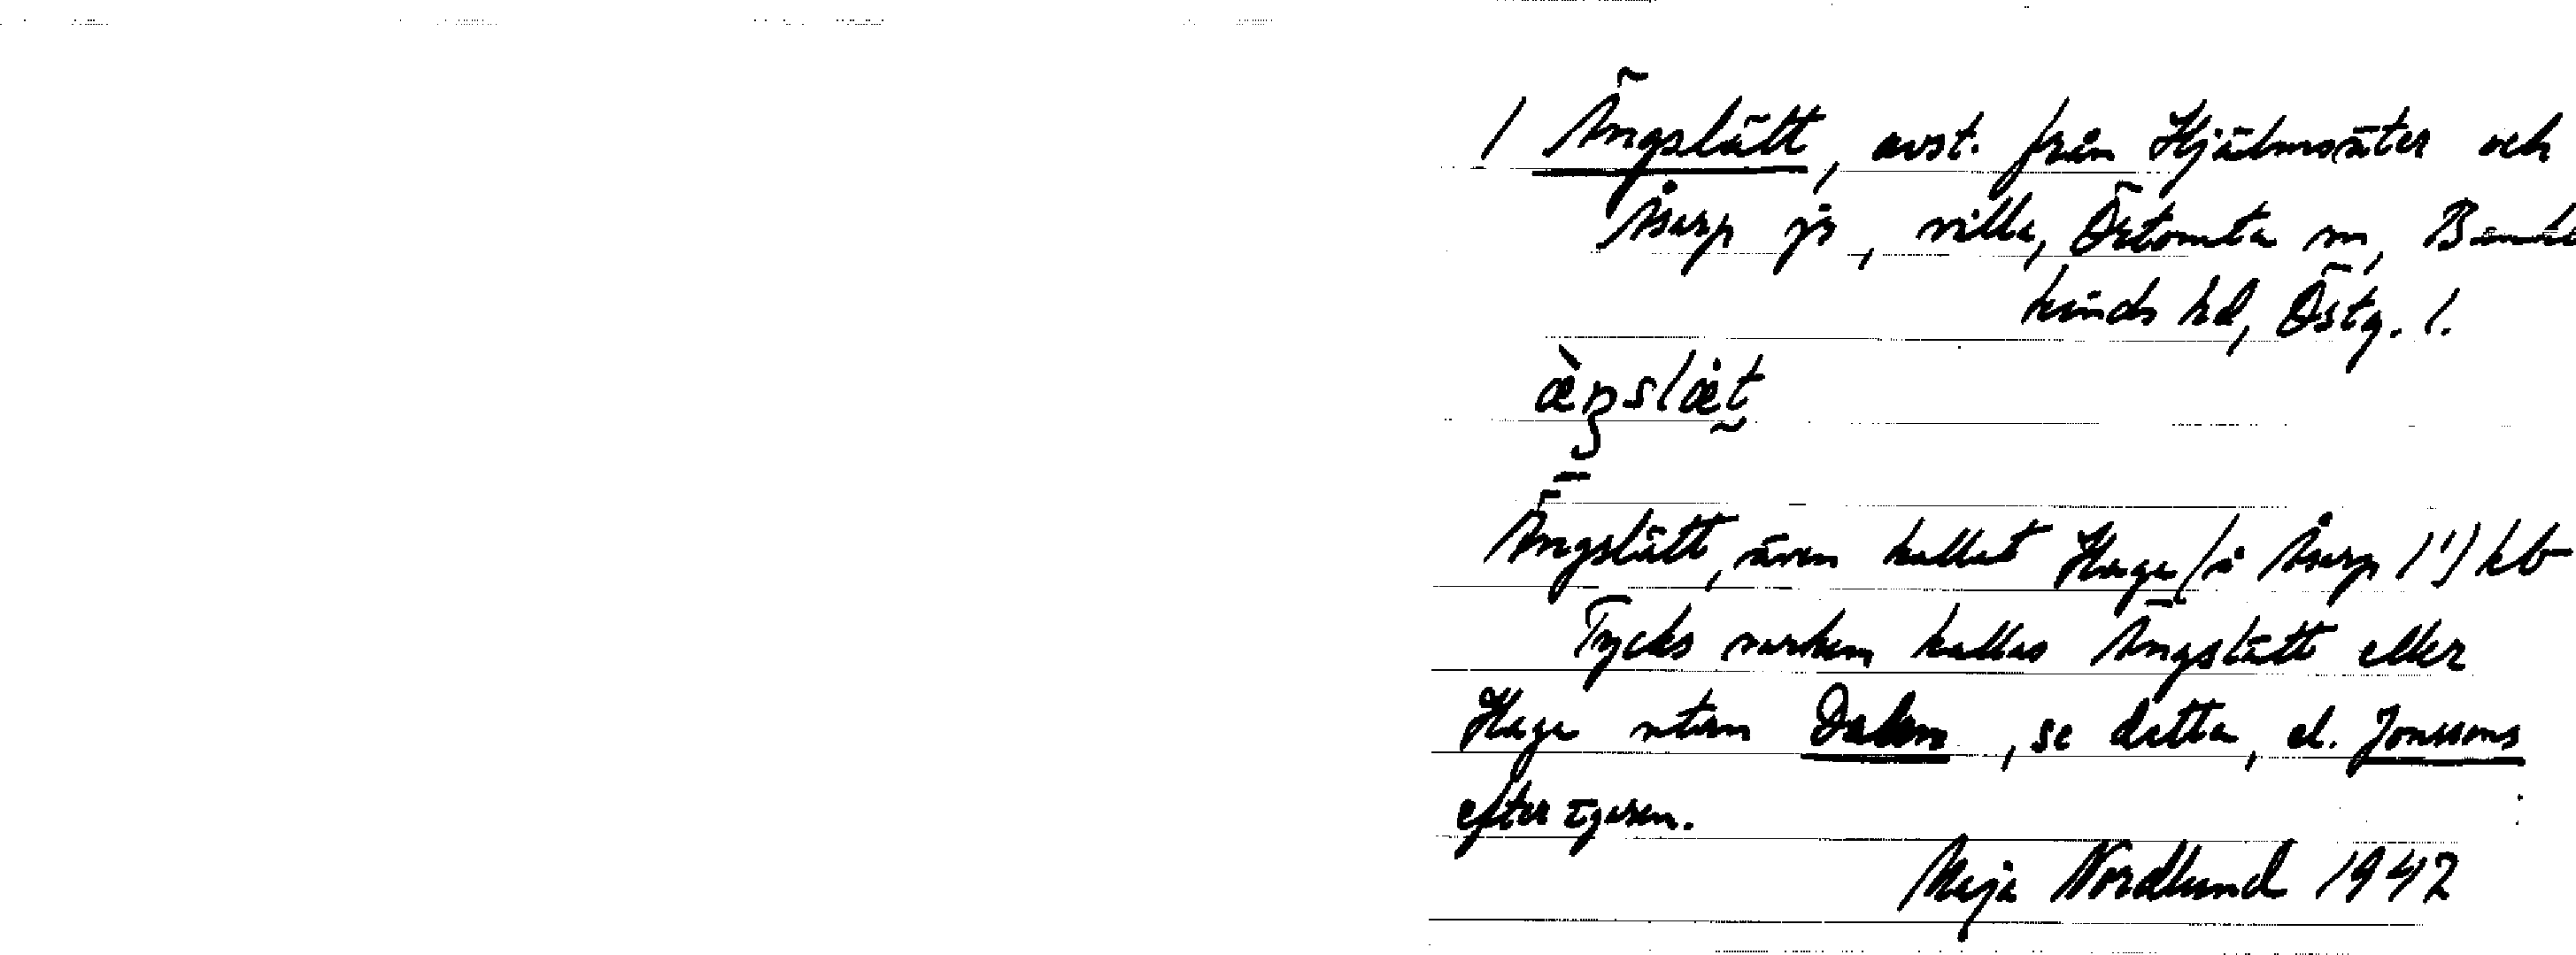 1 Ängslätt, avst. från Hjälmsäter och
Åsarp js, villa, Östomta sn, Banke
kinds hd, Östg. l.
æ̀ŋslæ̀t
Ängslätt, även kallat Haga (å Åsarp 1¹) kb
Tycks varken kallas Ängslätt eller
Haga utan Dalen, se detta, el. Jonssons
efter ägaren.
Maja Nordlund 1942